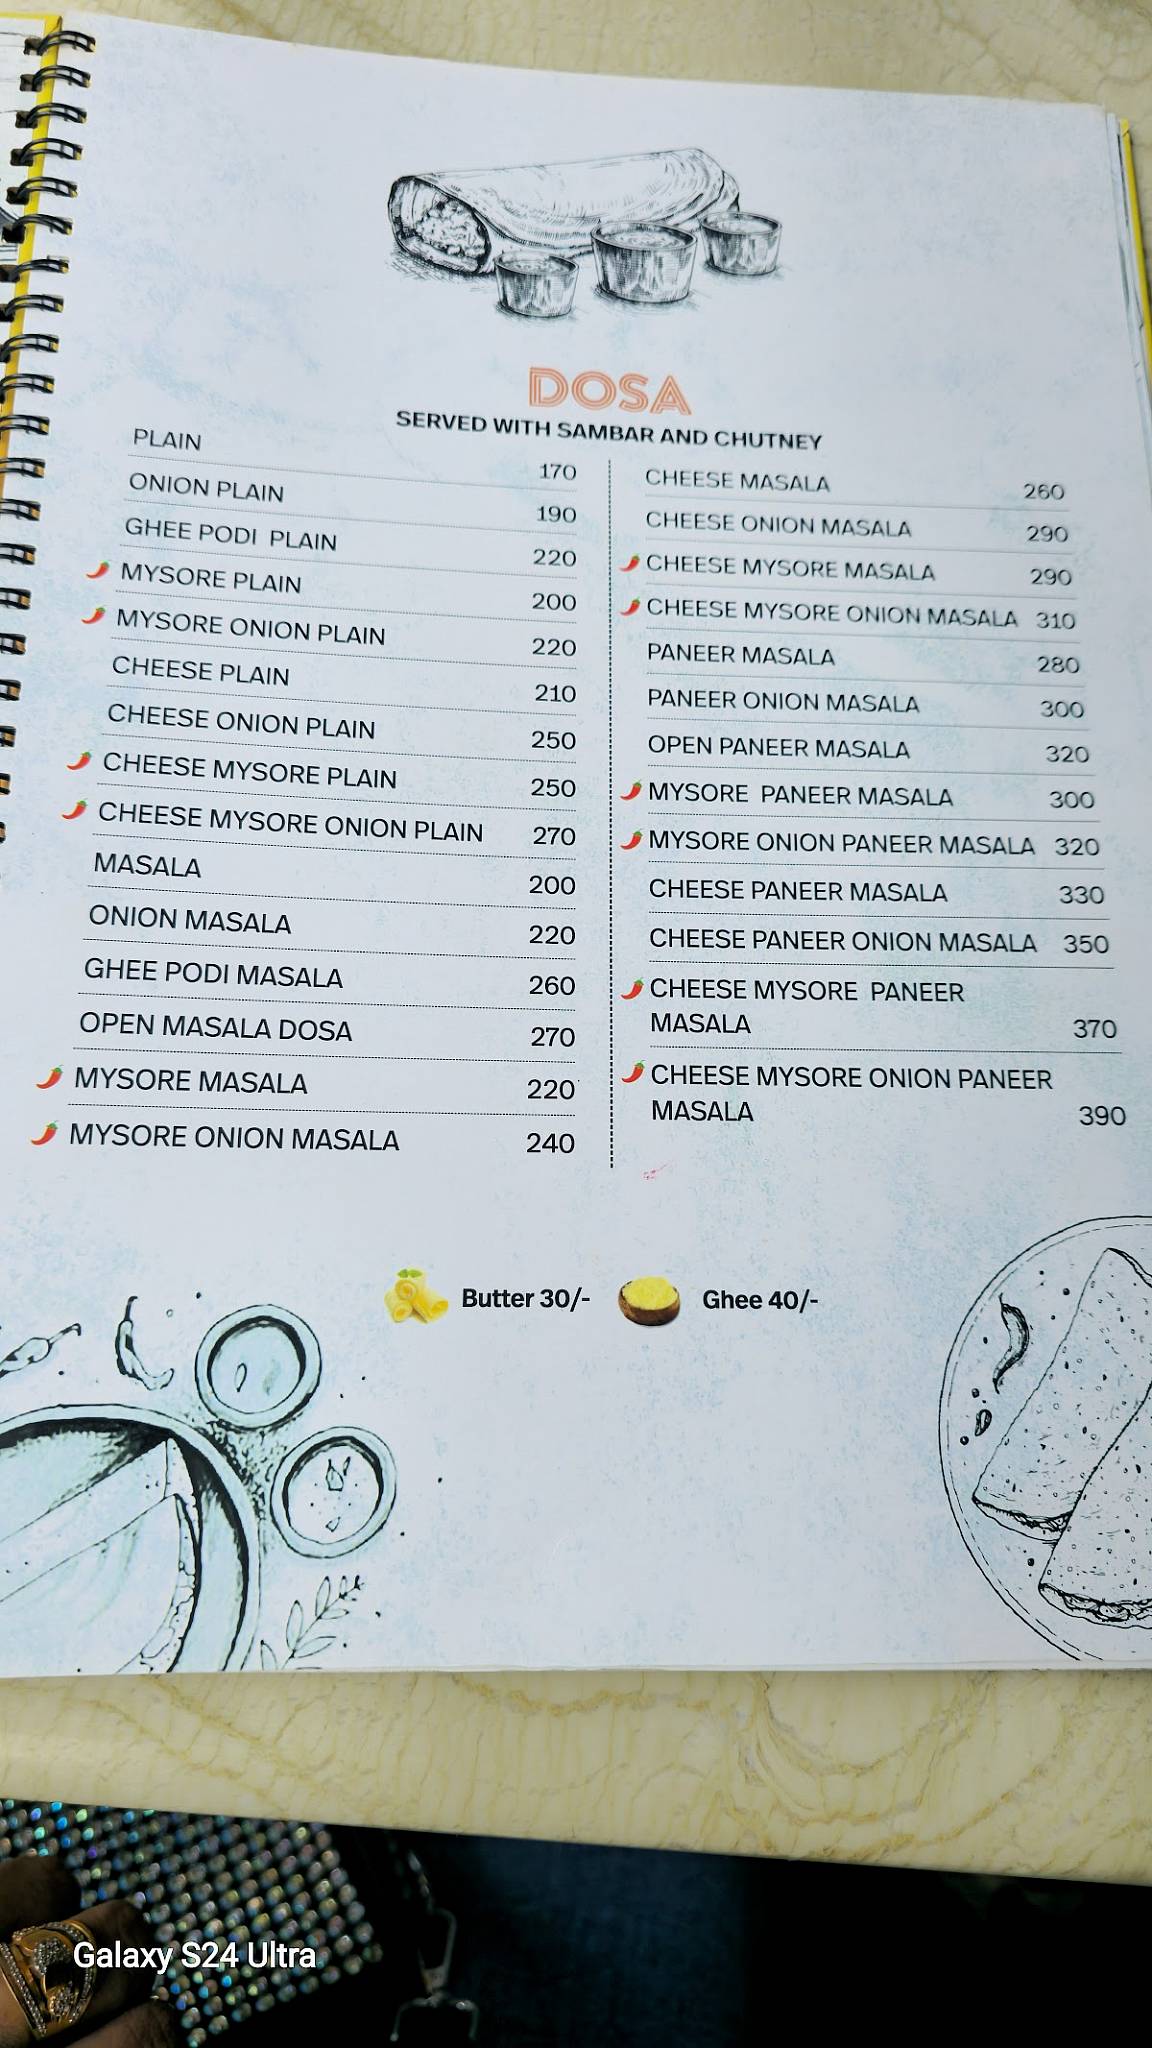 DOSA
SERVED WITH SAMBAR AND CHUTNEY
PLAIN 170
ONION PLAIN 190
GHEE PODI PLAIN 220
MYSORE PLAIN 200
MYSORE ONION PLAIN 220
CHEESE PLAIN 210
CHEESE ONION PLAIN 250
CHEESE MYSORE PLAIN 250
CHEESE MYSORE ONION PLAIN 270
MASALA 200
ONION MASALA 220
GHEE PODI MASALA 260
OPEN MASALA DOSA 270
MYSORE MASALA 220
MYSORE ONION MASALA 240
CHEESE MASALA 260
CHEESE ONION MASALA 290
CHEESE MYSORE MASALA 290
CHEESE MYSORE ONION MASALA 310
PANEER MASALA 280
PANEER ONION MASALA 300
OPEN PANEER MASALA 320
MYSORE PANEER MASALA 300
MYSORE ONION PANEER MASALA 320
CHEESE PANEER MASALA 330
CHEESE PANEER ONION MASALA 350
CHEESE MYSORE PANEER
MASALA 370
CHEESE MYSORE ONION PANEER
MASALA 390
Butter 30/- Ghee 40/-
Galaxy S24 Ultra